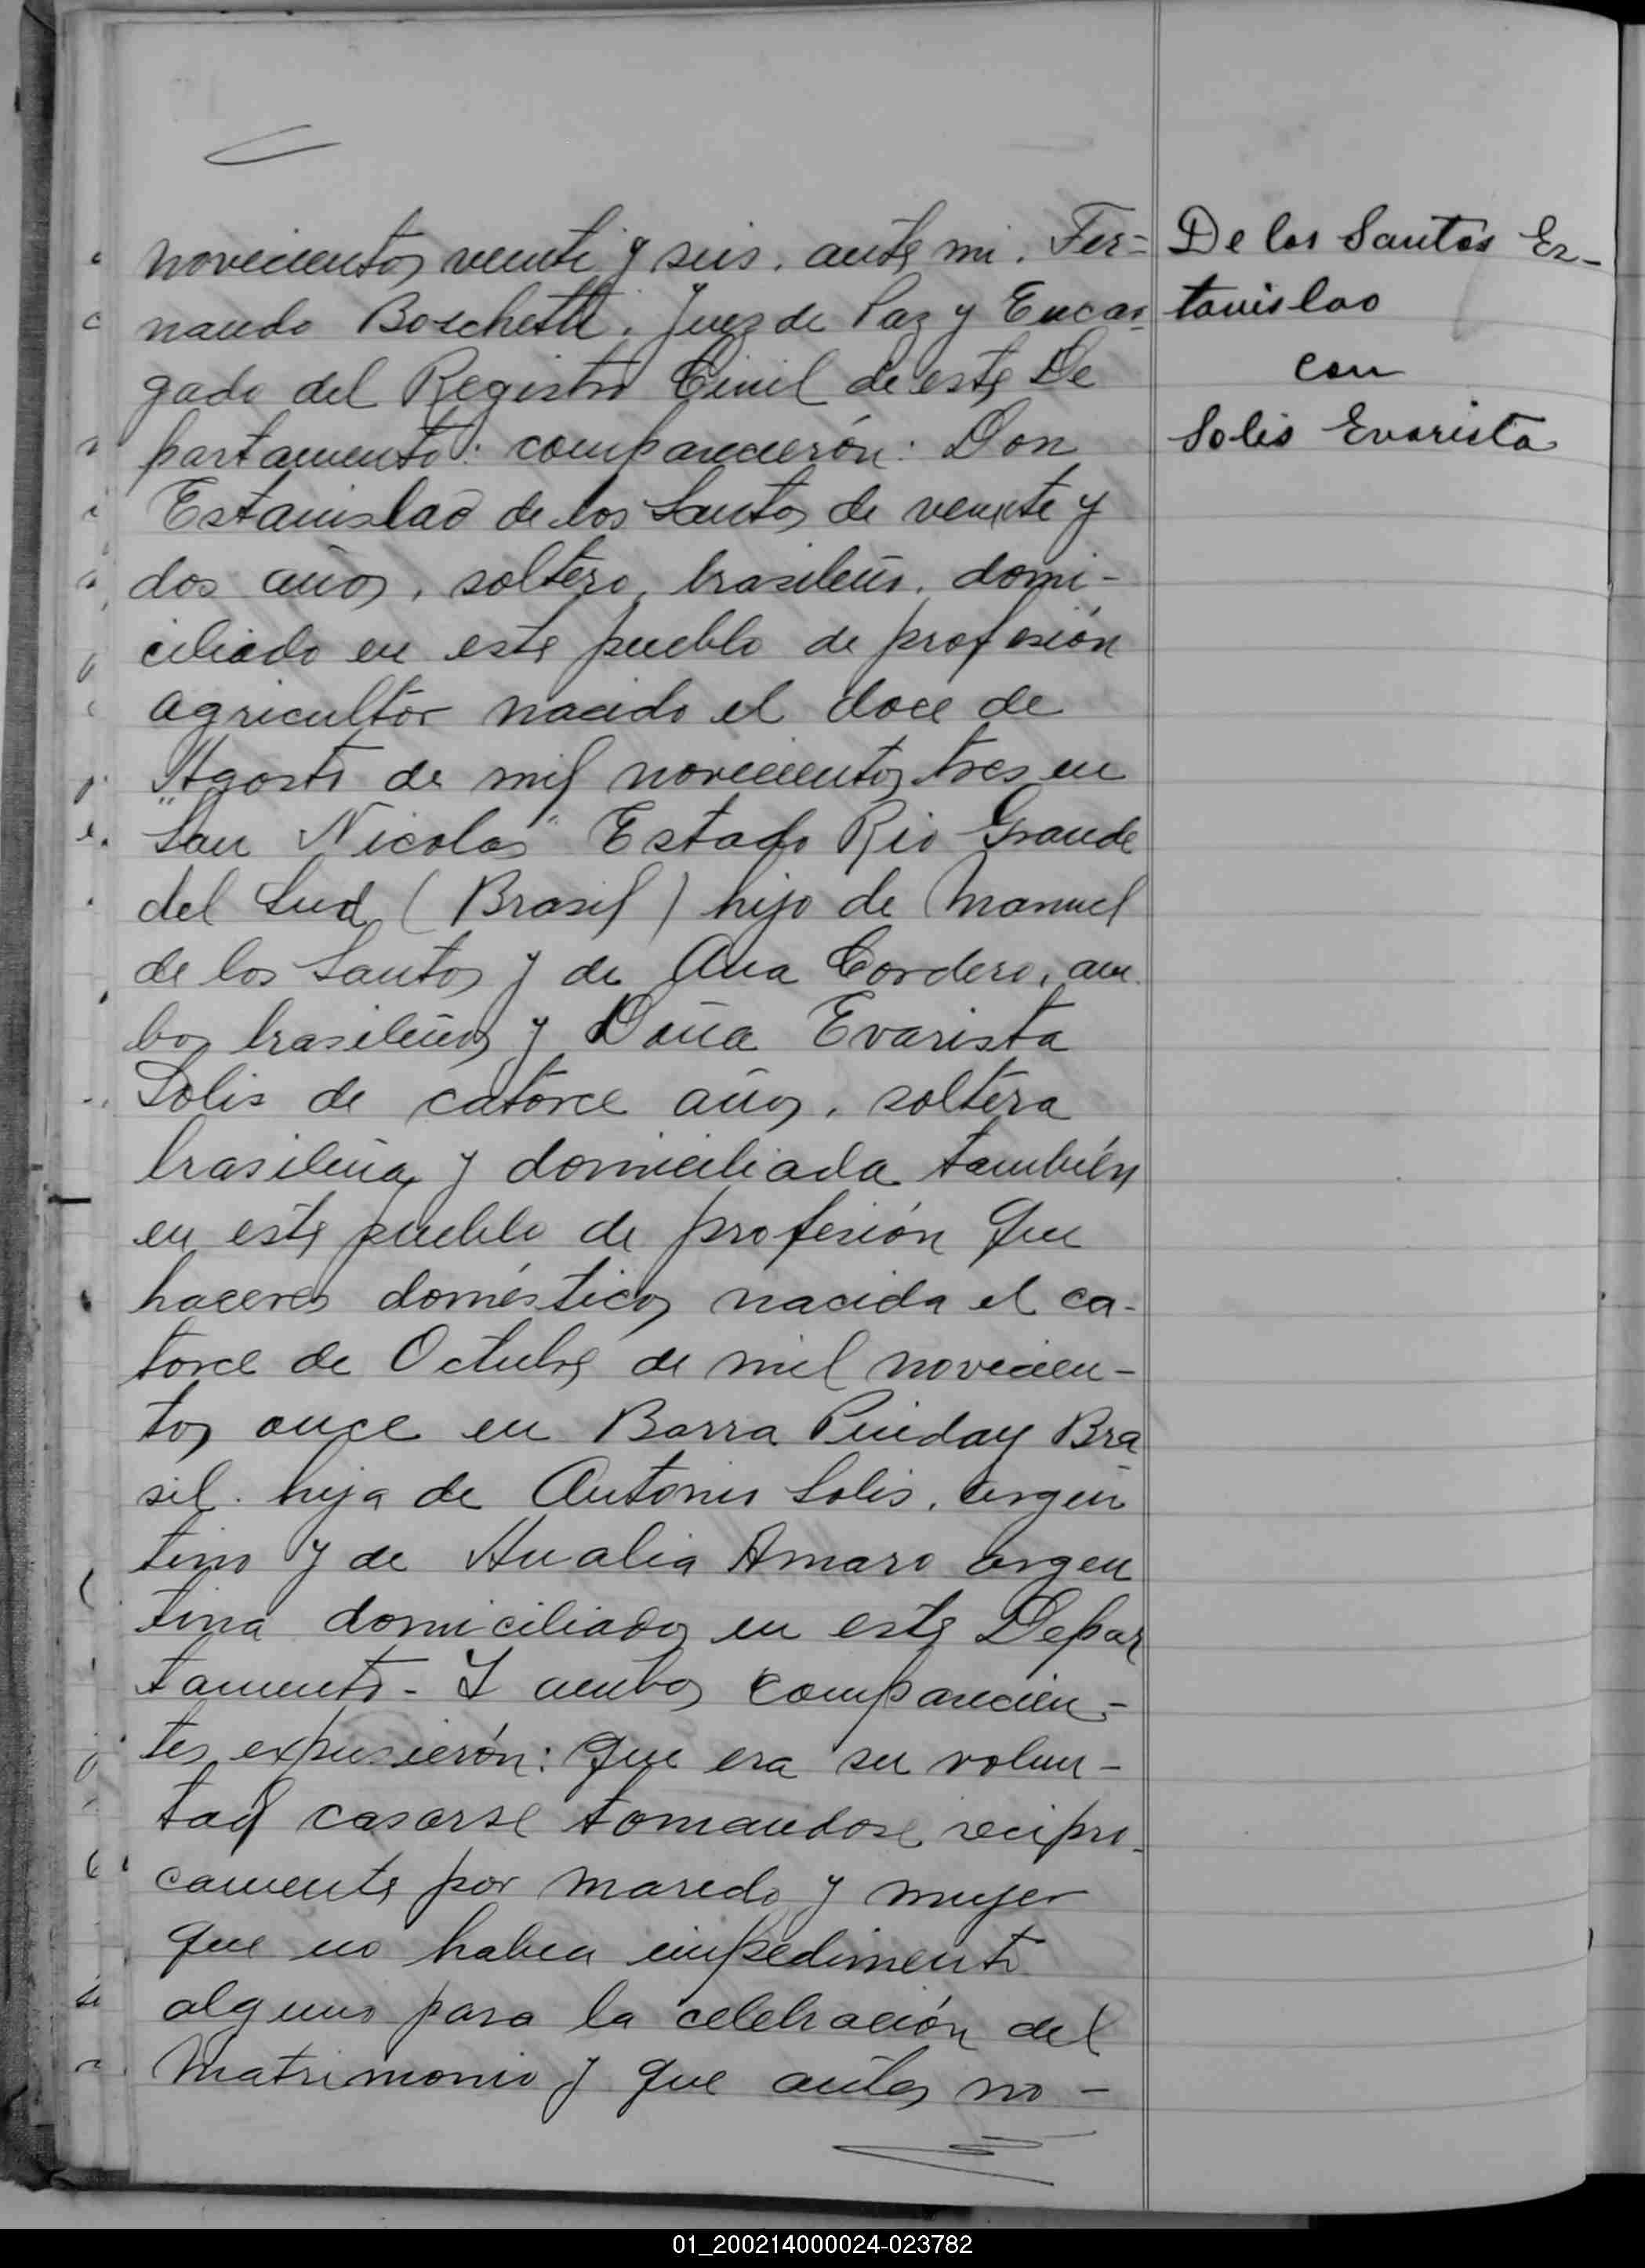 novecientos veinte y seis, ante mi, Fer-
nando Boschetti, Juez de Paz y Encar-
gado del Registro Civil de este De
partamento: comparecierón: Don
Estanislao de los Santos de veinte y
dos años, soltero, brasileño, domi-
ciliado en este pueblo de profesión
agricultor nacido el doce de
Agosto de mil novecientos tres en
"San Nicolas" Estado Rio Grande
del Sud (Brasil) hijo de Manuel
de los Santos y de Ana Cordero, am
bos brasileños y Doña Evarista
Solis de catorce años, soltera
brasileña y domiciliada también
en este pueblo de profesión que
haceres domésticos nacida el ca-
torce de Octubre de mil novecien-
tos once en Barra Pinday Bra
sil. hija de Antonio Solis, argen
tino y de Analia Amaro argen
tina domiciliados en este Depar
tamento - Y ambos comparecien-
tes expusierón: que era su volun-
tad casarse tomandose recipro-
camente por marido y mujer
que no habia impedimento
alguno para la celebración del
matrimonio y que antes no -
De los Santos Es-
tanislao
con
Solis Evarista
01_200214000024-023782